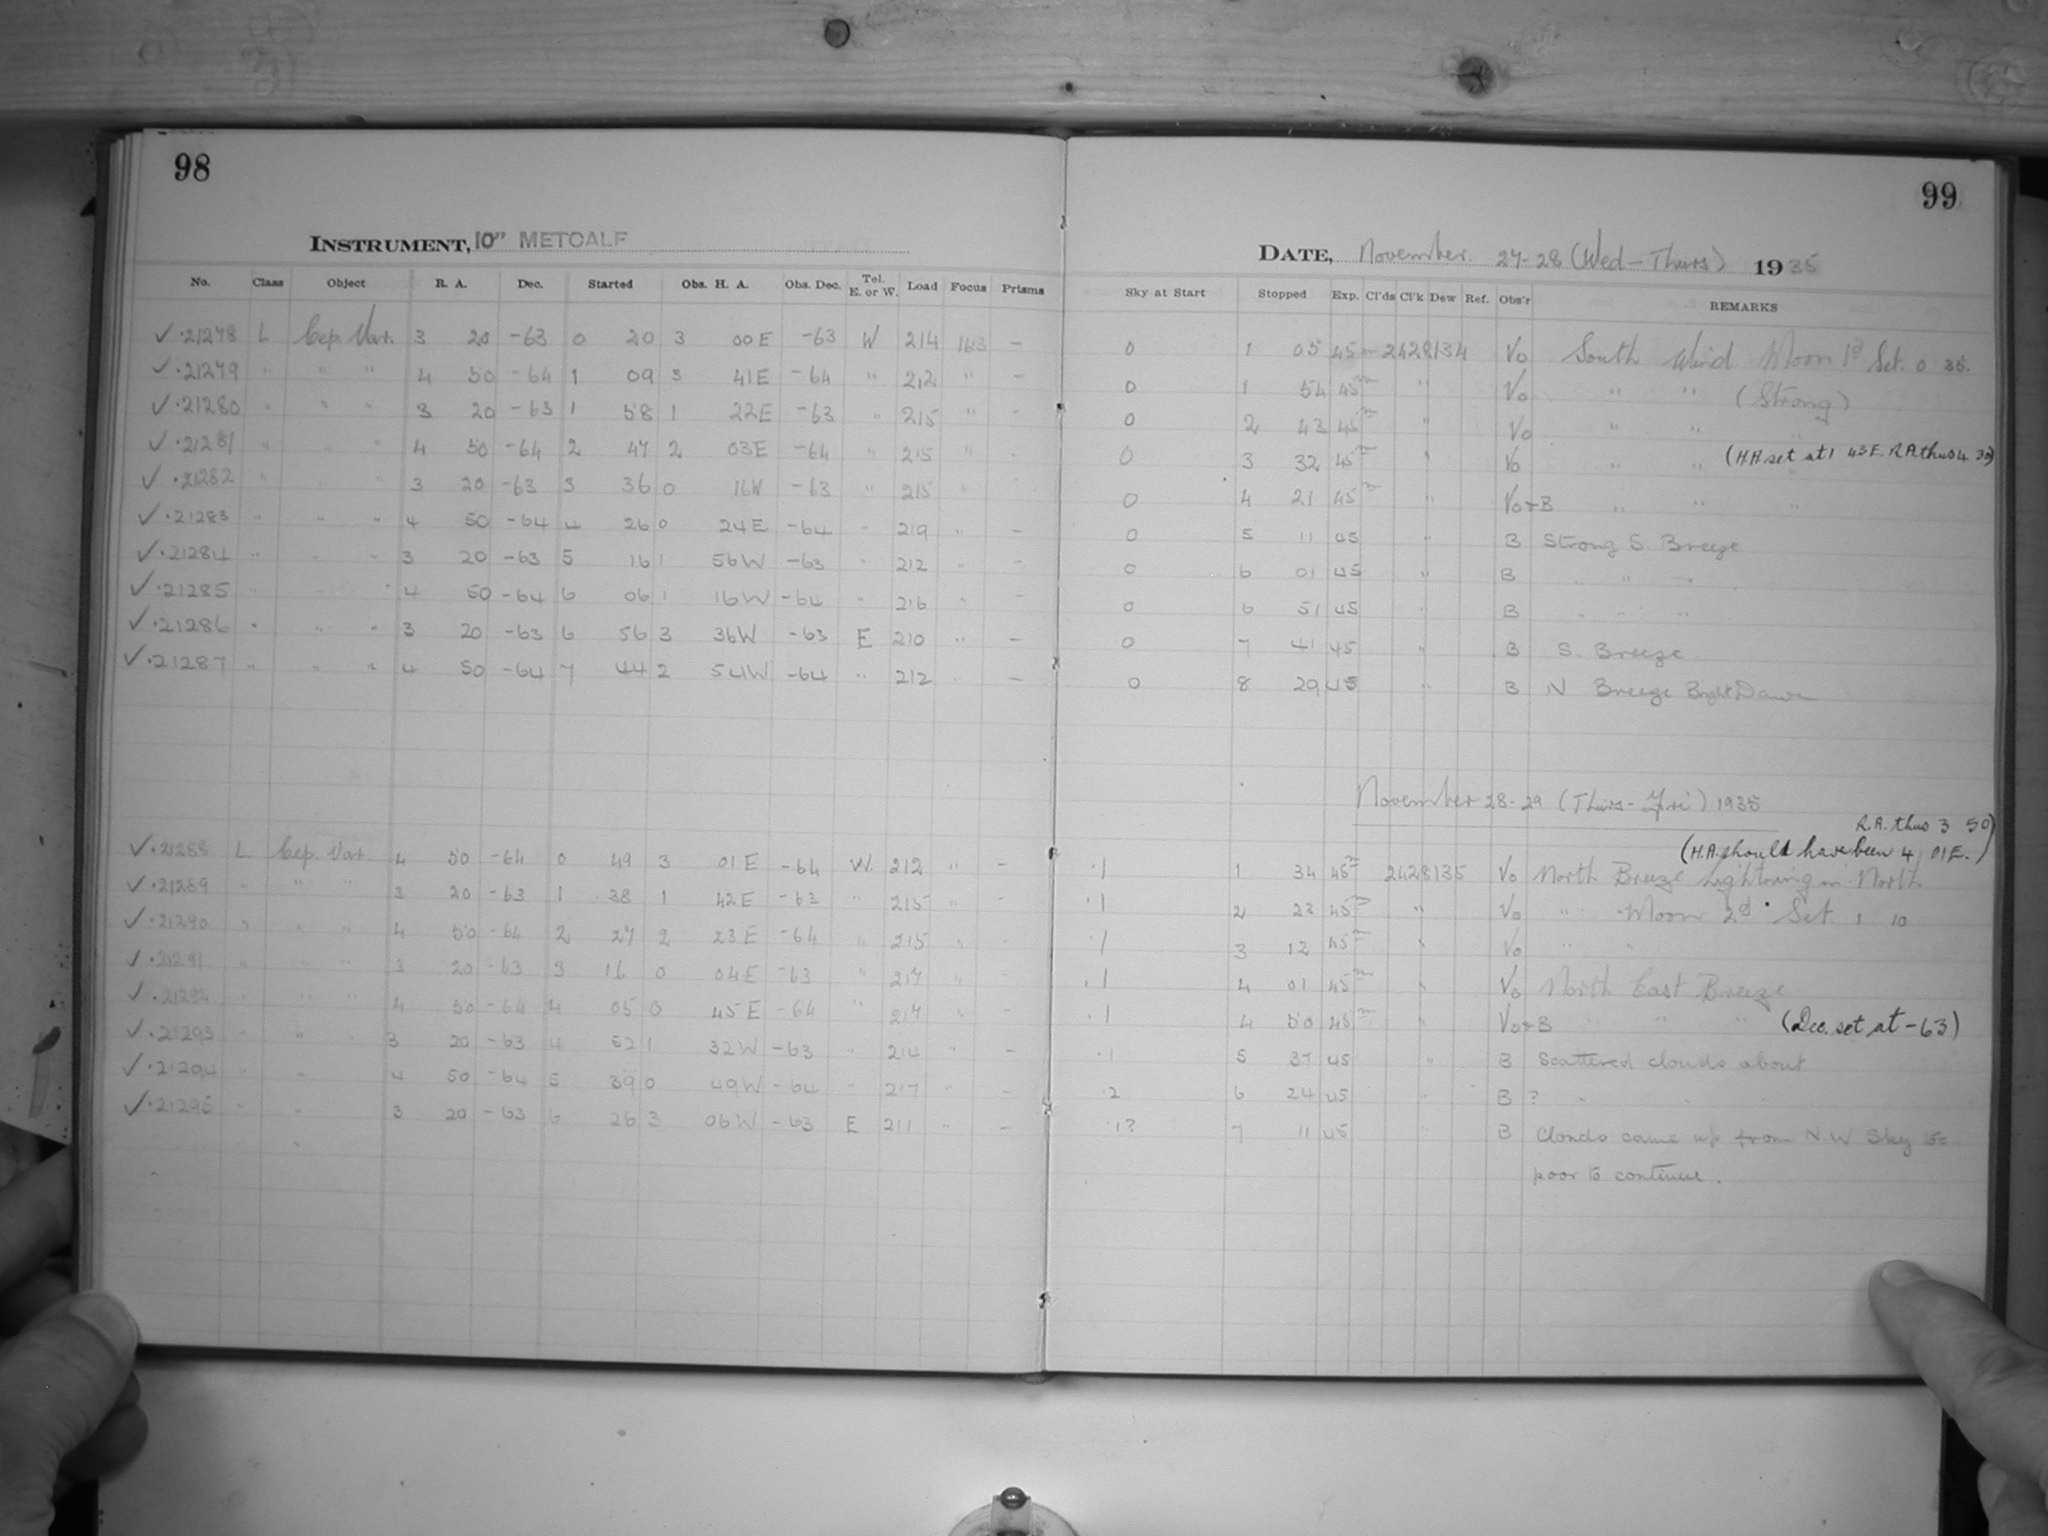 98
INSTRUMENT, 10" METCALF
No. Class Object R. A. Dec. Started Obs. H. A. Obs. Dec. Tel. E. or W. Load Focus Prisms
✓ ·21278 L Cep. Var. 3 20 -63 0 20 3 00 E -63 W 214 163 -
✓ ·21279 " " " 4 50 -64 1 09 3 41 E -64 " 212 " -
✓ ·21280 " " " 3 20 -63 1 58 1 22 E -63 " 215 " -
✓ ·21281 " " " 4 50 -64 2 47 2 03 E -64 " 215 " -
✓ ·21282 " " " 3 20 -63 3 36 0 16 W -63 " 215 " -
✓ ·21283 " " " 4 50 -64 4 26 0 24 E -64 " 219 " -
✓ ·21284 " " " 3 20 -63 5 16 1 56 W -63 " 212 " -
✓ ·21285 " " " 4 50 -64 6 06 1 16 W -64 " 216 " -
✓ ·21286 " " " 3 20 -63 6 56 3 36 W -63 E 210 " -
✓ ·21287 " " " 4 50 -64 7 44 2 54 W -64 " 212 " -
✓ ·21288 L Cep. Var 4 50 -64 0 49 3 01 E -64 W. 212 " -
✓ ·21289 " " " 3 20 -63 1 38 1 42 E -63 " 215 " -
✓ ·21290 " " " 4 50 -64 2 27 2 23 E -64 " 215 " -
✓ ·21291 " " " 3 20 -63 3 16 0 04 E -63 " 217 " -
✓ ·21292 " " " 4 50 -64 4 05 0 45 E -64 " 217 " -
✓ ·21293 " " 3 20 -63 4 52 1 32 W -63 " 214 " -
✓ ·21294 " " 4 50 -64 5 39 0 49 W -64 " 217 " -
✓ ·21295 " " 3 20 -63 6 26 3 06 W -63 E 211 " -
99
DATE, November. 27-28 (Wed - Thurs) 1935
Sky at Start Stopped Exp. Cl'ds Cl'k Dew Ref. Obs'r REMARKS
0 1 05 45m 2428134 Vo South Wind Moon 1d Set. 0 35.
0 1 54 45m " Vo " " (Strong)
0 2 43 45m " Vo " " "
0 3 32 45m " Vo " " (H.A set at 1 43 E. R.A. thus 4 30)
0 4 21 45m " Vo+B " " "
0 5 11 45 " B Strong S. Breeze
0 6 01 45 " B " " "
0 6 51 45 " B " " "
0 7 41 45 " B S. Breeze
0 8 29 45 " B N Breeze Bright Dawn
November 28-29 (Thurs - Fri) 1935
R.A. thus 3 50)
(H.A. should have been 4 01 E.
·1 1 34 45m 2428135 Vo North Breeze Lightning in North
·1 2 23 45m " Vo " Moon 2d Set 1 10
·1 3 12 45m " Vo " "
·1 4 01 45m " Vo North East Breeze
·1 4 50 45m " Vo+B " " " (Dec. set at -63)
·1 5 37 45 " B Scattered clouds about
·2 6 24 45 " B ? " "
·1? 7 11 45 " B Clouds came up from N.W Sky too
poor to continue.